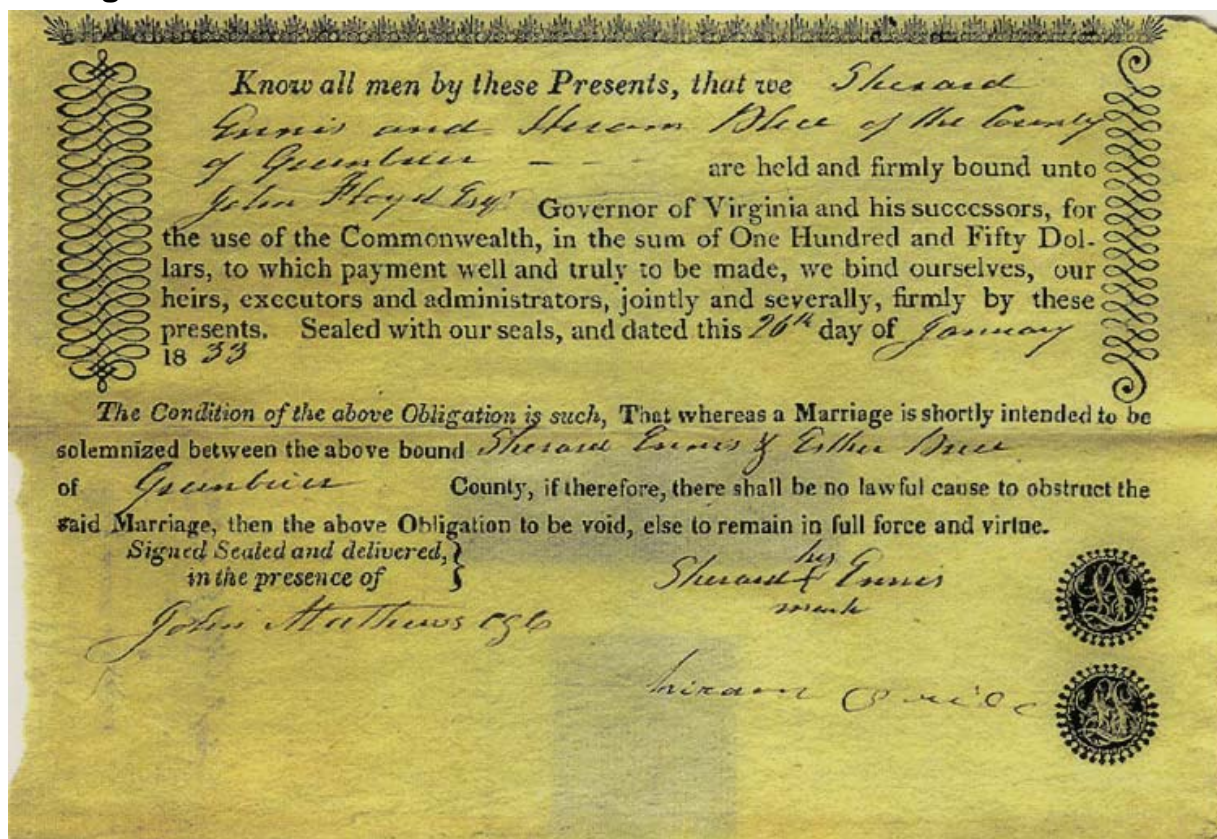 Know all men by these Presents, that we Sherard
Ennis and Hiram of the County
of Greenbrier - - - are held and firmly bound unto
John Floyd Esqr Governor of Virginia and his successors, for
the use of the Commonwealth, in the sum of One Hundred and Fifty Dol-
lars, to which payment well and truly to be made, we bind ourselves, our
heirs, executors and administrators, jointly and severally, firmly by these
presents. Sealed with our seals, and dated this 26th day of January
1833
The Condition of the above Obligation is such, That whereas a Marriage is shortly intended to be
solemnized between the above bound Sherard Ennis & Esther
of Greenbrier County, if therefore, there shall be no lawful cause to obstruct the
said Marriage, then the above Obligation to be void, else to remain in full force and virtue.
Signed Sealed and delivered,
in the presence of
John Mathews
his
Sherard X Ennis
mark
hiram